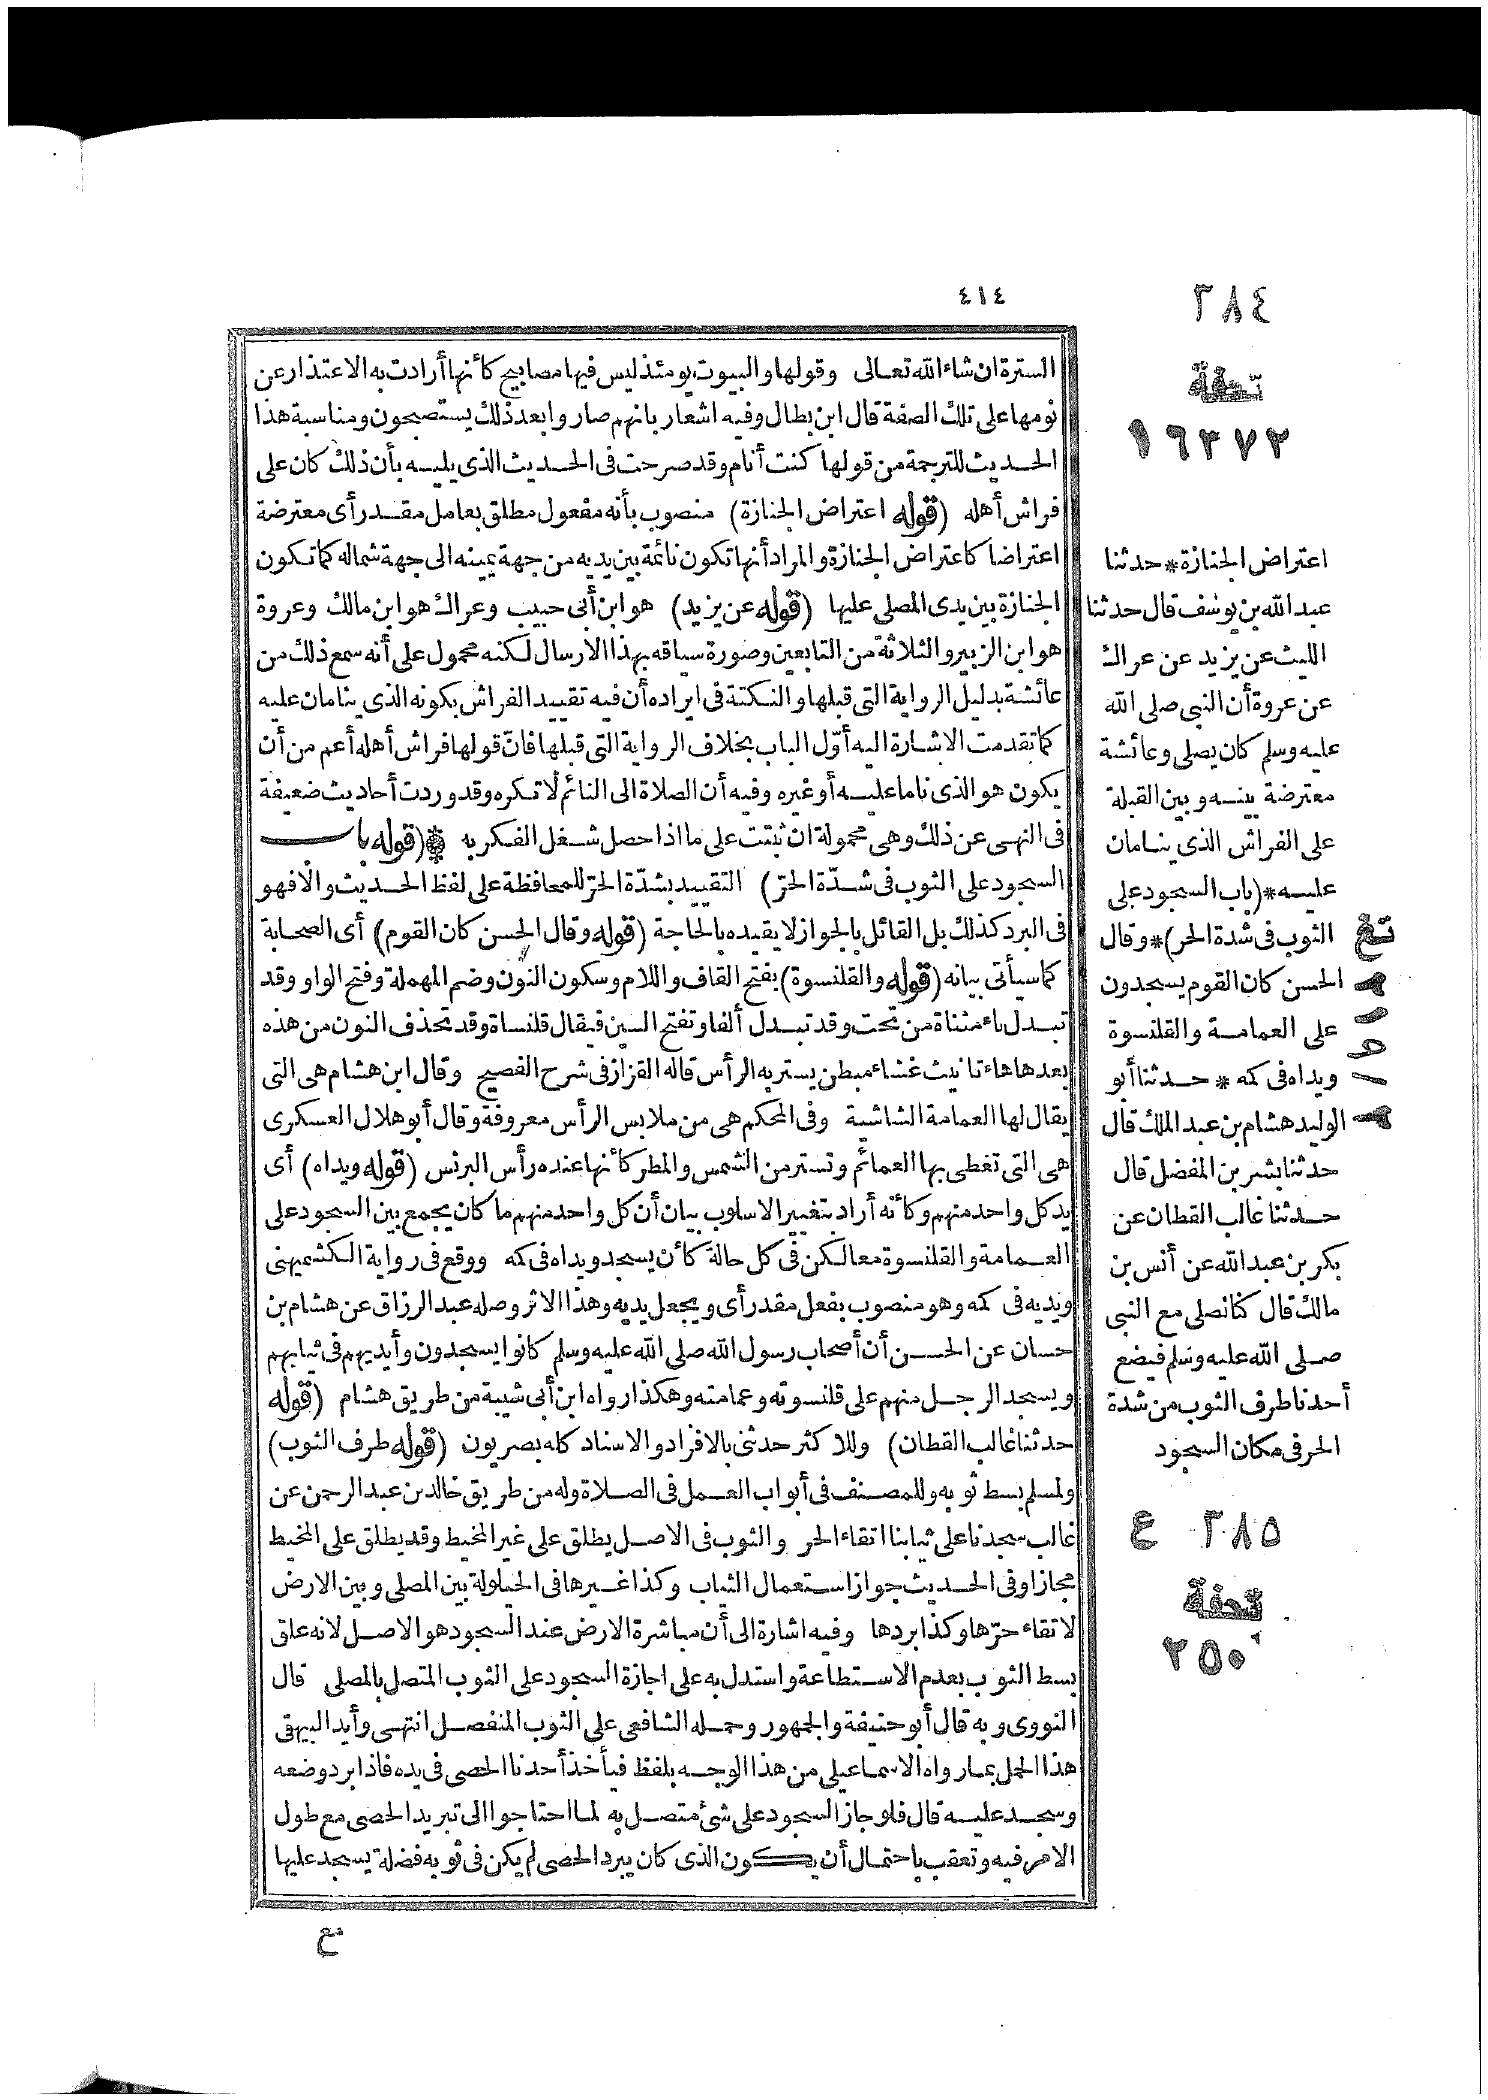 ٤١٤
السترة ان شاء الله تعالى وقولها والبيوت يومئذ ليس فيها مصابيح كأنها أرادت به الاعتذار عن
نومها على تلك الصفة قال ابن بطال وفيه اشعار بانهم صاروا بعد ذلك يستصبحون ومناسبة هذا
الحديث للترجمة من قولها كنت أنام وقد صرحت فى الحديث الذى يليه بأن ذلك كان على
فراش أهله (قوله اعتراض الجنازة) منصوب بأنه مفعول مطلق بعامل مقدر أى معترضة
اعتراضا كاعتراض الجنازة والمراد أنها تكون نائمة بين يديه من جهة يمينه الى جهة شماله كما تكون
الجنازة بين يدى المصلى عليها (قوله عن يزيد) هو ابن أبى حبيب وعراك هو ابن مالك وعروة
هو ابن الزبير والثلاثة من التابعين وصورة سياقه بهذا الارسال لكنه محمول على أنه سمع ذلك من
عائشة بدليل الرواية التى قبلها والنكتة فى ايراده أن فيه تقييد الفراش بكونه الذى ينامان عليه
كما تقدمت الاشارة اليه أوّل الباب بخلاف الرواية التى قبلها فانّ قولها فراش أهله أعم من أن
يكون هو الذى ناما عليه أو غيره وفيه أن الصلاة الى النائم لا تكره وقد وردت أحاديث ضعيفة
فى النهى عن ذلك وهى محمولة ان ثبتت على ما اذا حصل شغل الفكر به * (قوله باب
السجود على الثوب فى شدّة الحرّ) التقييد بشدّة الحرّ للمحافظة على لفظ الحديث والافهو
فى البرد كذلك بل القائل بالجواز لا يقيده بالحاجة (قوله وقال الحسن كان القوم) أى الصحابة
كما سيأتى بيانه (قوله والقلنسوة) بفتح القاف واللام وسكون النون وضم المهملة وفتح الواو وقد
تبدل ياء مثناة من تحت وقد تبدل ألفا وتفتح السين فيقال قلنساة وقد تحذف النون من هذه
بعدها هاء تانيث غشاء مبطن يستر به الرأس قاله القزاز فى شرح الفصيح وقال ابن هشام هى التى
يقال لها العمامة الشاشية وفى المحكم هى من ملابس الرأس معروفة وقال أبو هلال العسكرى
هى التى تغطى بها العمائم وتستر من الشمس والمطر كأنها عنده رأس البرنس (قوله ويداه) أى
يد كل واحد منهم وكأنه أراد بتغيير الاسلوب بيان أن كل واحد منهم ما كان يجمع بين السجود على
العمامة والقلنسوة معا لكن فى كل حالة كأن يسجد ويداه فى كمه ووقع فى رواية الكشميهنى
ويديه فى كمه وهو منصوب بفعل مقدر أى ويجعل يديه وهذا الاثر وصله عبد الرزاق عن هشام بن
حسان عن الحسن أن أصحاب رسول الله صلى الله عليه وسلم كانوا يسجدون وأيديهم فى ثيابهم
ويسجد الرجل منهم على قلنسوته وعمامته وهكذا رواه ابن أبى شيبة من طريق هشام (قوله
حدثنا غالب القطان) وللاكثر حدثنى بالافراد والاسناد كله بصريون (قوله طرف الثوب)
ولمسلم بسط ثوبه وللمصنف فى أبواب العمل فى الصلاة وله من طريق خالد بن عبد الرحمن عن
غالب سجدنا على ثيابنا اتقاء الحر والثوب فى الاصل يطلق على غير المخيط وقد يطلق على المخيط
مجازا وفى الحديث جواز استعمال الثياب وكذا غيرها فى الحيلولة بين المصلى وبين الارض
لاتقاء حرّها وكذا بردها وفيه اشارة الى أن مباشرة الارض عند السجود هو الاصل لانه علق
بسط الثوب بعدم الاستطاعة واستدل به على اجازة السجود على الثوب المتصل بالمصلى قال
النووى وبه قال أبو حنيفة والجمهور وحمله الشافعى على الثوب المنفصل انتهى وأيد البيهقى
هذا الحمل بما رواه الاسماعيلى من هذا الوجه بلفظ فيأخذ أحدنا الحصى فى يده فاذا برد وضعه
وسجد عليه قال فلو جاز السجود على شئ متصل به لما احتاجوا الى تبريد الحصى مع طول
الامر فيه وتعقب باحتمال أن يكون الذى كان يبرد الحصى لم يكن فى ثوبه فضلة يسجد عليها
٣٨٤
تحفة
١٦٣٧٢
اعتراض الجنازة * حدثنا
عبد الله بن يوسف قال حدثنا
الليث عن يزيد عن عراك
عن عروة أن النبى صلى الله
عليه وسلم كان يصلى وعائشة
معترضة بينه وبين القبلة
على الفراش الذى ينامان
عليه * (باب السجود على
الثوب فى شدة الحر) * وقال
الحسن كان القوم يسجدون
على العمامة والقلنسوة
ويداه فى كمه * حدثنا أبو
الوليد هشام بن عبد الملك قال
حدثنا بشر بن المفضل قال
حدثنا غالب القطان عن
بكر بن عبد الله عن أنس بن
مالك قال كنا نصلى مع النبى
صلى الله عليه وسلم فيضع
أحدنا طرف الثوب من شدة
الحر فى مكان السجود
تغ
٣٨٥ ع
تحفة
٢٥٠